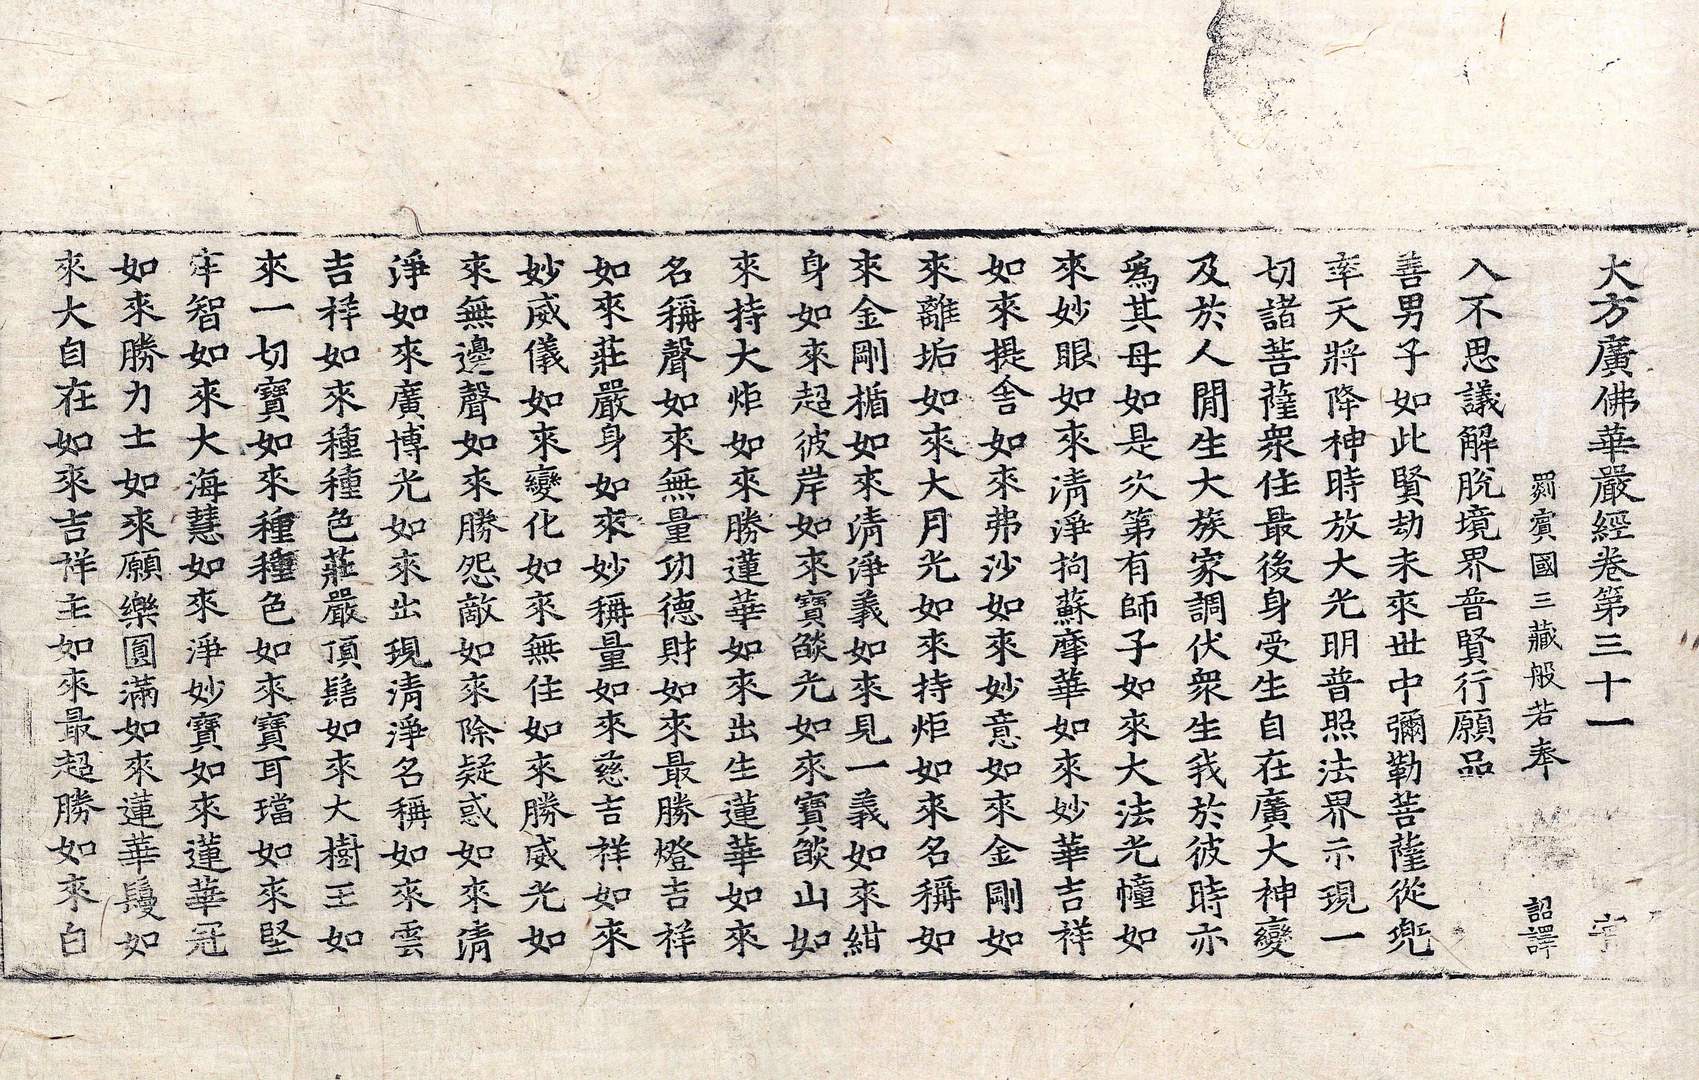 大方廣佛華嚴經卷第三十一
罽賓國三藏般若奉 詔譯
入不思議解脫境界普賢行願品
善男子如此賢劫未來世中彌勒菩薩從兜
率天將降神時放大光明普照法界示現一
切諸菩薩衆住最後身受生自在廣大神變
及於人間生大族家調伏衆生我於彼時亦
爲其母如是次第有師子如來大法光幢如
來妙眼如來清淨拘蘇摩華如來妙華吉祥
如來提舍如來弗沙如來妙意如來金剛如
來離垢如來大月光如來持炬如來名稱如
來金剛楯如來清淨義如來見一義如來紺
身如來超彼岸如來寶燄光如來寶燄山如
來持大炬如來勝蓮華如來出生蓮華如來
名稱聲如來無量功德財如來最勝燈吉祥
如來莊嚴身如來妙稱量如來慈吉祥如來
妙威儀如來變化如來無住如來勝威光如
來無邊聲如來勝怨敵如來除疑惑如來清
淨如來廣博光如來出現清淨名稱如來雲
吉祥如來種種色莊嚴頂髻如來大樹王如
來一切寶如來種種色如來寶耳璫如來堅
牢智如來大海慧如來淨妙寶如來蓮華冠
如來勝力士如來願樂圓滿如來蓮華鬘如
來大自在如來吉祥主如來最超勝如來白